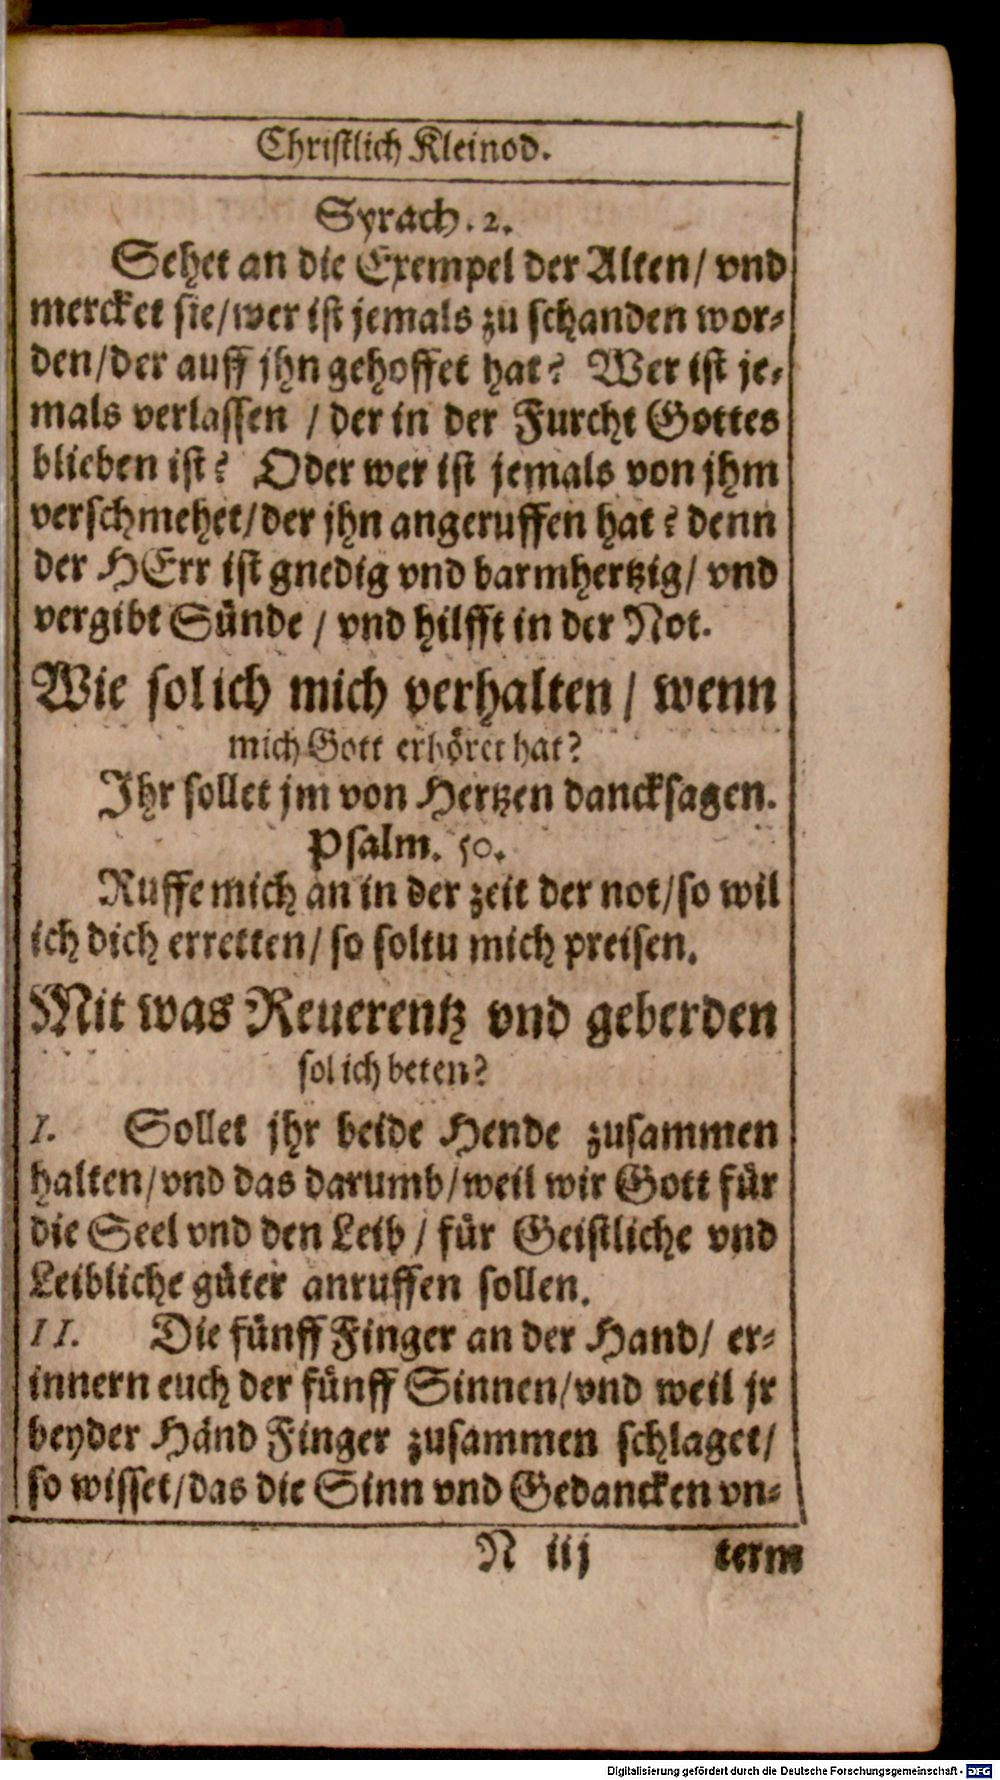 Christlich Kleinod.
Syrach. 2.
Sehet an die Exempel der Alten/ vnd
mercket sie/wer ist jemals zu schanden wor-
den/der auff jhn gehoffet hat? Wer ist je-
mals verlassen / der in der Furcht Gottes
blieben ist? Oder wer ist jemals von jhm
verschmehet/der jhn angeruffen hat? denn
der HErr ist gnedig vnd barmhertzig/ vnd
vergibt Sünde / vnd hilfft in der Not.
Wie sol ich mich verhalten / wenn
mich Gott erhöret hat?
Ihr sollet jm von Hertzen dancksagen.
Psalm. 50.
Ruffe mich an in der zeit der not/so wil
ich dich erretten/ so soltu mich preisen.
Mit was Reuerentz vnd geberden
sol ich beten?
I. Sollet jhr beide Hende zusammen
halten/vnd das darumb/weil wir Gott für
die Seel vnd den Leib / für Geistliche vnd
Leibliche güter anruffen sollen.
II. Die fünff Finger an der Hand/ er-
innern euch der fünff Sinnen/vnd weil jr
beyder Händ Finger zusammen schlaget/
so wisset/das die Sinn vnd Gedancken vn-
N iij term
Digitalisierung gefördert durch die Deutsche Forschungsgemeinschaft - DFG